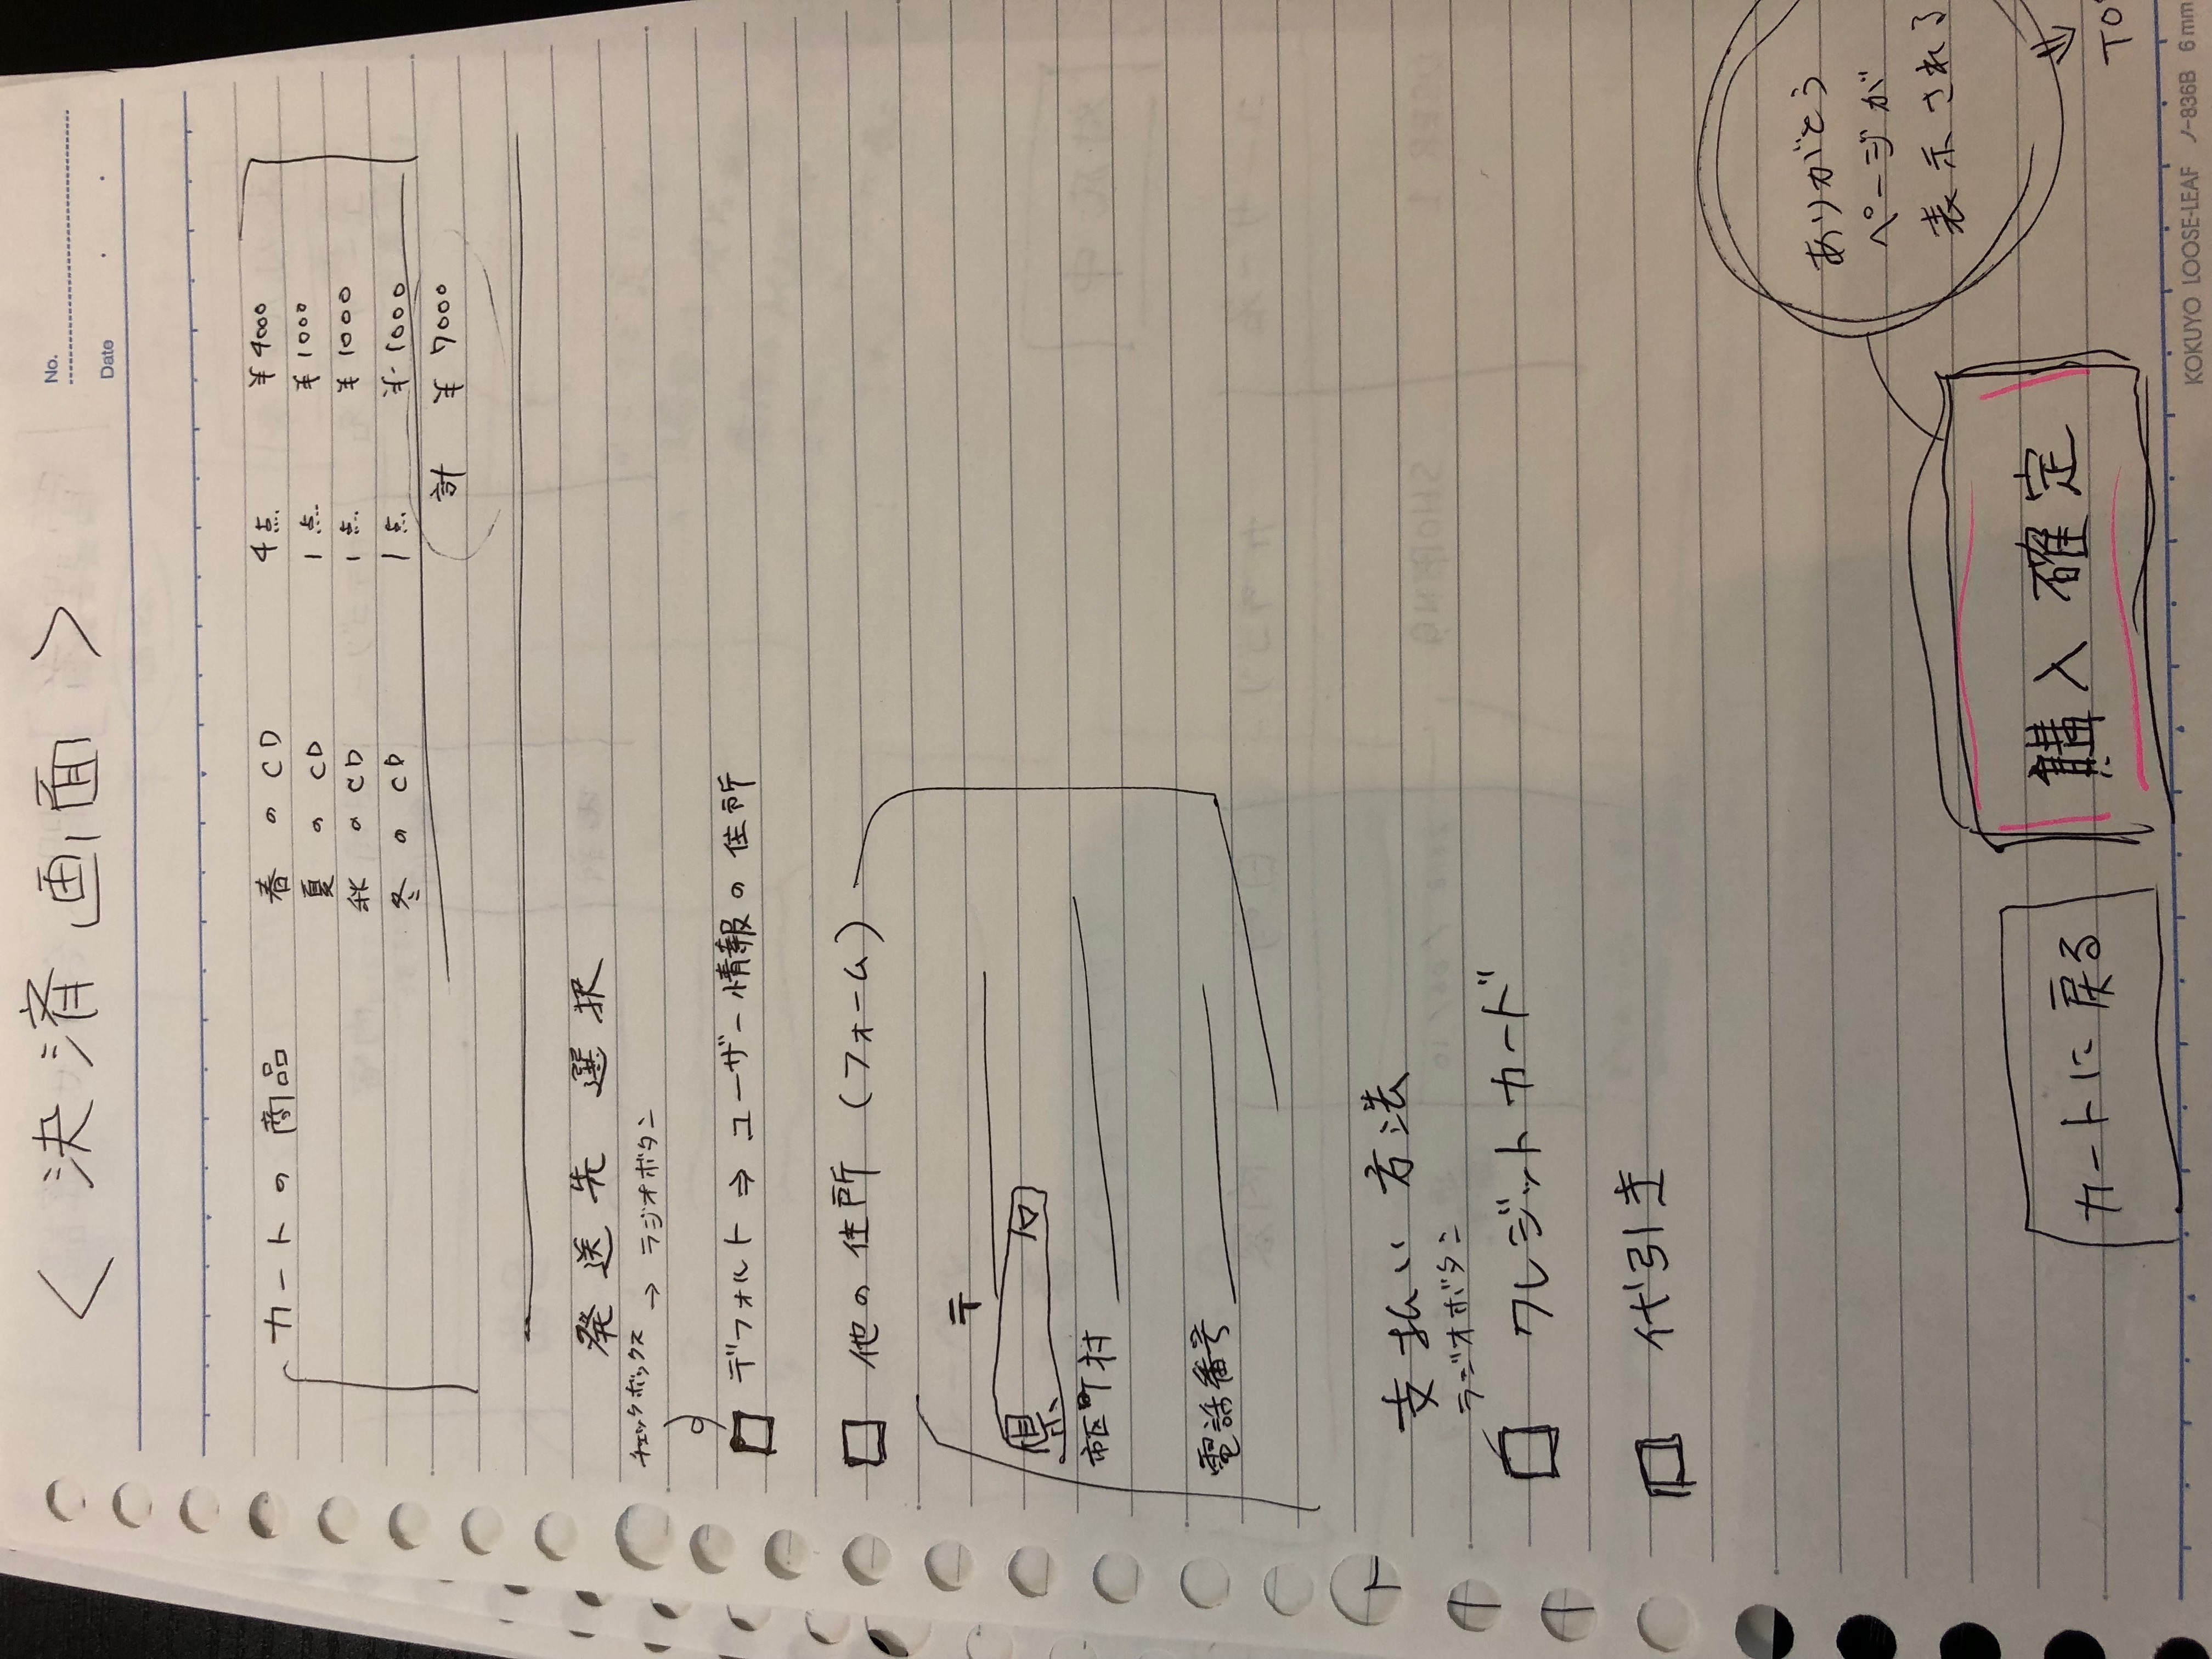 No.
Date
＜決済画面＞
カートの商品 春のCD 4点 ¥4000
夏のCD 1点 ¥1000
秋のCD 1点 ¥1000
冬のCD 1点 ¥1000
計 ¥7000
発送先選択
チェックボックス → ラジオボタン
□ デフォルト ⇒ ユーザー情報の住所
□ 他の住所（フォーム）
〒
県
市区町村
電話番号
支払い方法
ラジオボタン
□ クレジットカード
□ 代引き
ありがとう
ページが
表示される
カートに戻る
購入確定
KOKUYO LOOSE-LEAF ノ-836B 6mm